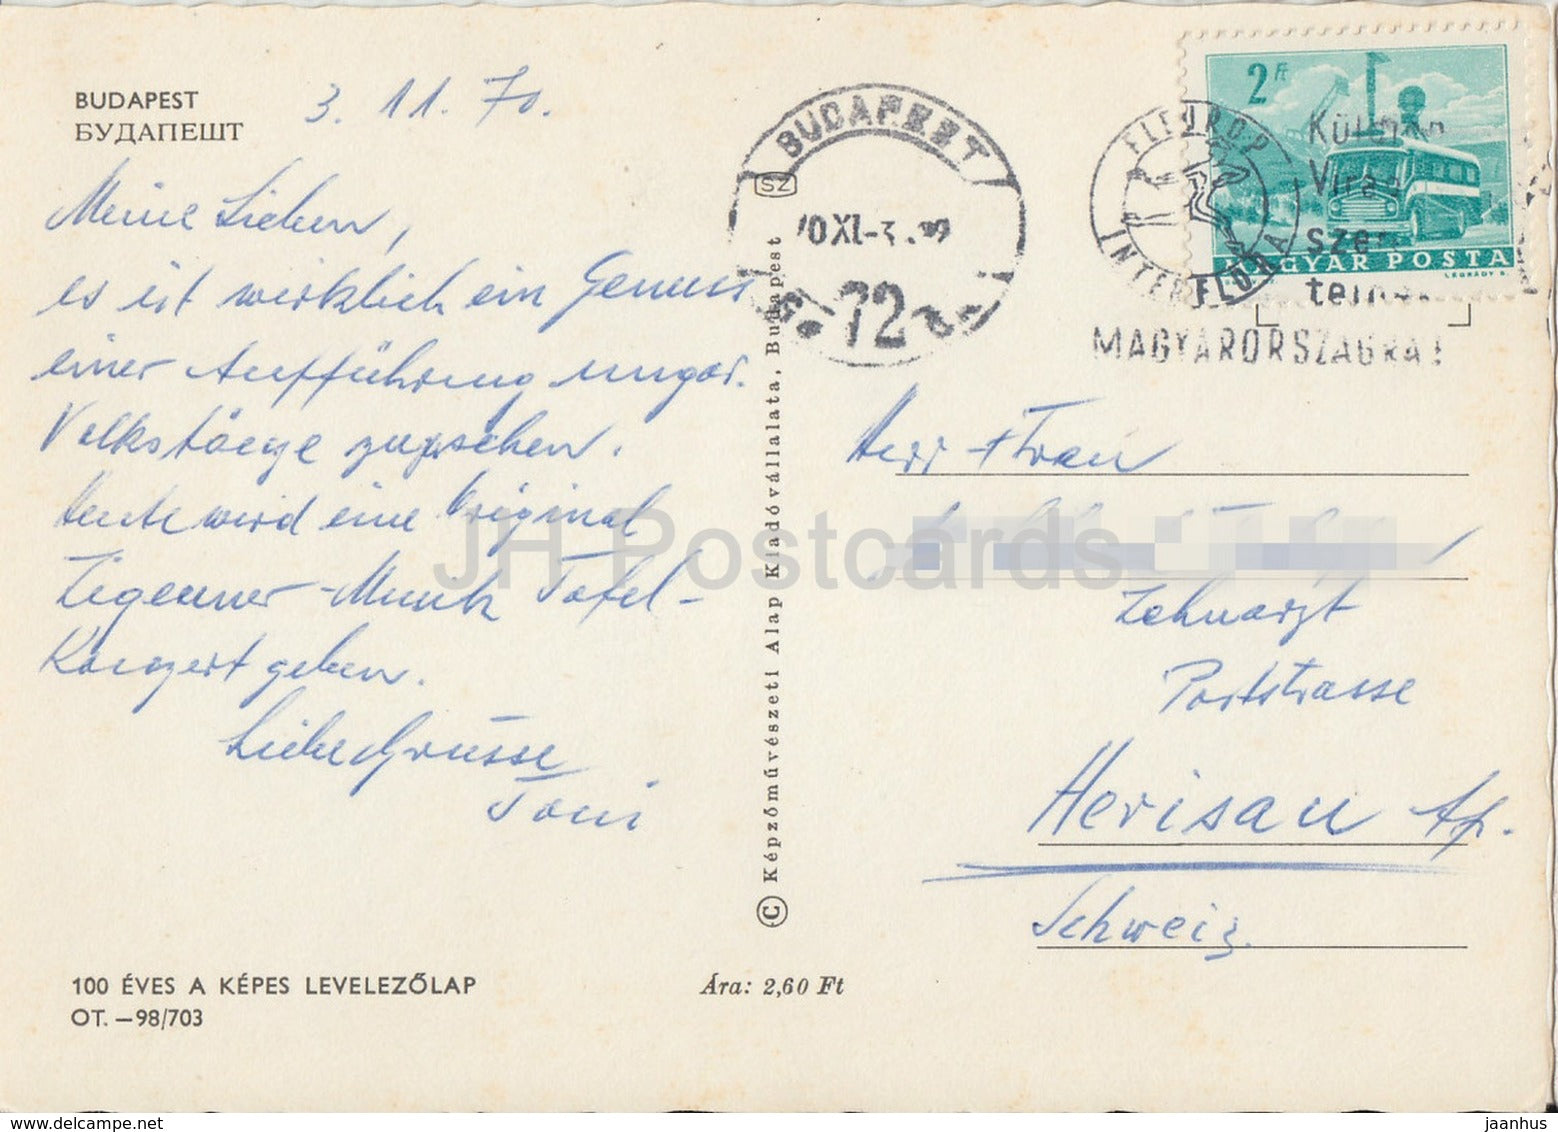 BUDAPEST
БУДАПЕШТ
3. 11. 70.
Meine Lieben,
es ist wirklich ein Genuss
einer Aufführung ungar.
Volkstänze zuzusehen.
Heute wird eine Original
Zigeuner-Musik Tafel-
Konzert geben.
Liebe Grüsse
Toni
100 ÉVES A KÉPES LEVELEZŐLAP
OT. —98/703
Ára: 2,60 Ft
© Képzőművészeti Alap Kiadóvállalata, Budapest
BUDAPEST
SZ
70 XI-3
72
FLEUROP
INTERFLORA
MAGYARORSZÁGRA!
2 Ft
MAGYAR POSTA
LÉGRÁDY S.
Herr + Frau
Zahnarzt
Poststrasse
Herisau Ap.
Schweiz.
JH Postcards
delcampe.net
jaanhus